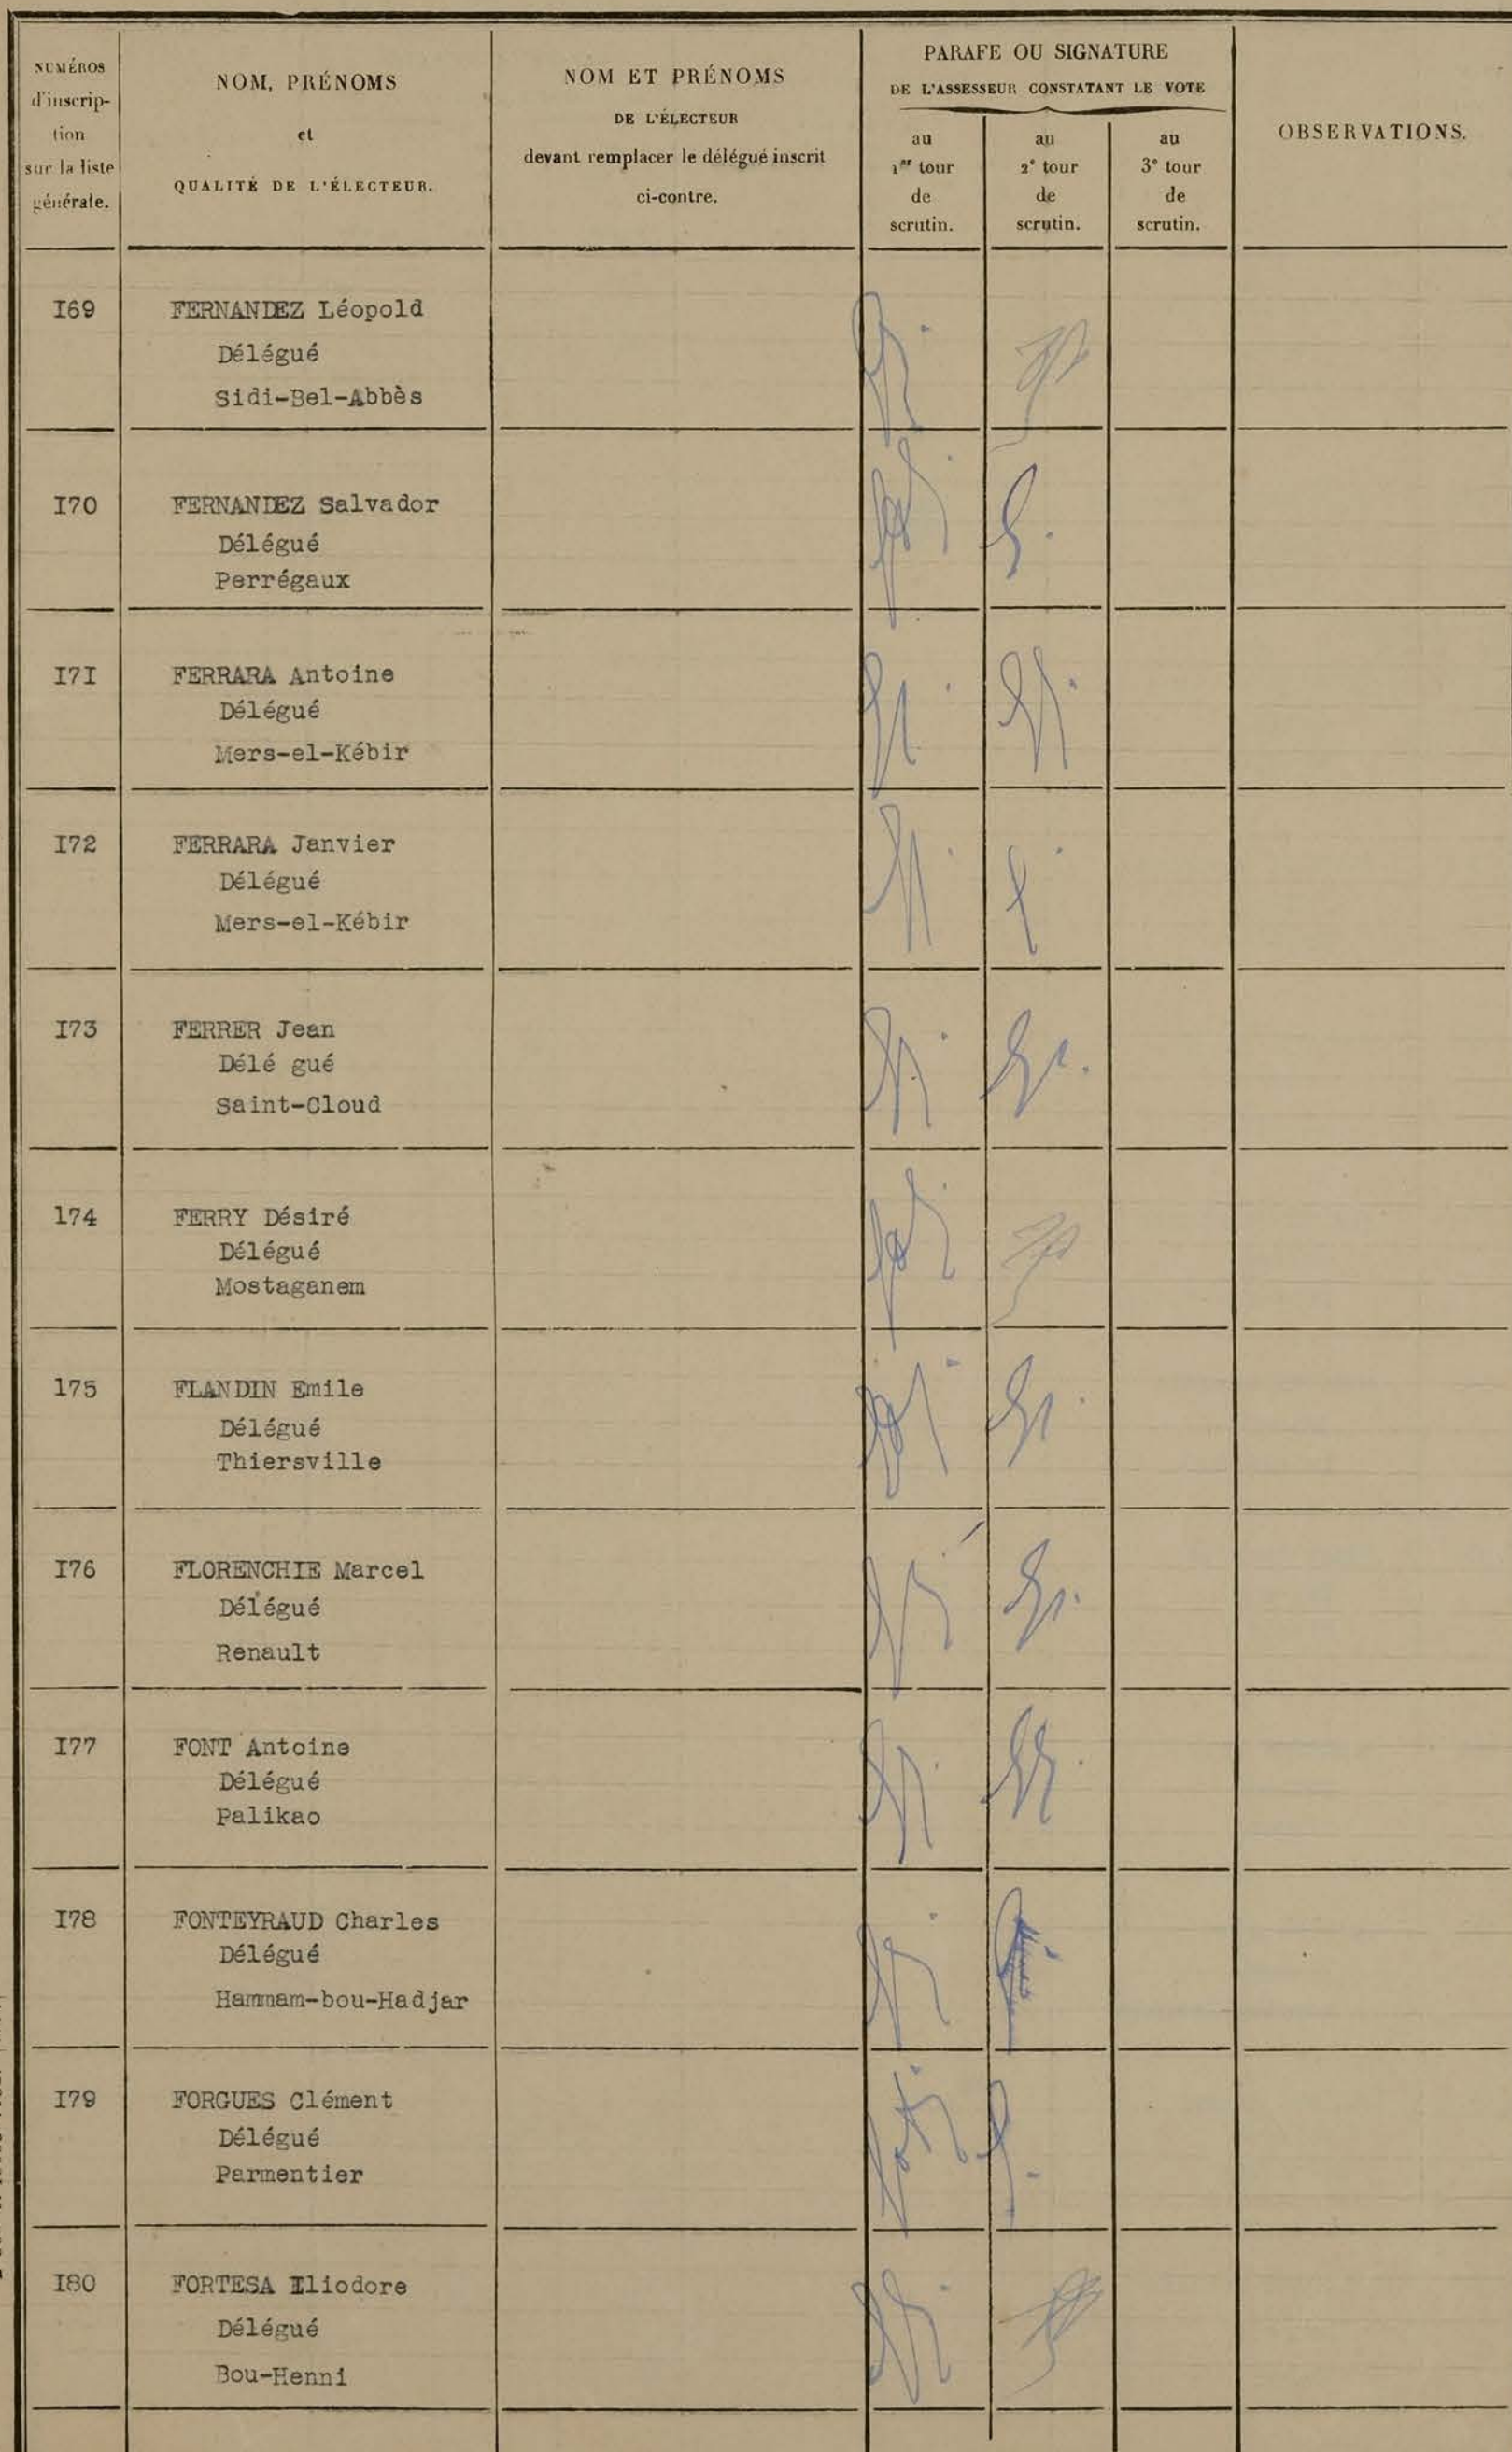 NUMÉROS
d'inscrip-
tion
sur la liste
générale.
NOM, PRÉNOMS
et
QUALITÉ DE L'ÉLECTEUR.
NOM ET PRÉNOMS
DE L'ÉLECTEUR
devant remplacer le délégué inscrit
ci-contre.
PARAFE OU SIGNATURE
DE L'ASSESSEUR CONSTATANT LE VOTE
au
1er tour
de
scrutin.
au
2e tour
de
scrutin.
au
3e tour
de
scrutin.
OBSERVATIONS.
I69 FERNANDEZ Léopold
Délégué
Sidi-Bel-Abbès
I70 FERNANDEZ Salvador
Délégué
Perrégaux
I7I FERRARA Antoine
Délégué
Mers-el-Kébir
I72 FERRARA Janvier
Délégué
Mers-el-Kébir
I73 FERRER Jean
Délé gué
Saint-Cloud
174 FERRY Désiré
Délégué
Mostaganem
175 FLANDIN Emile
Délégué
Thiersville
I76 FLORENCHIE Marcel
Délégué
Renault
I77 FONT Antoine
Délégué
Palikao
I78 FONTEYRAUD Charles
Délégué
Hammam-bou-Hadjar
I79 FORGUES Clément
Délégué
Parmentier
I80 FORTESA Eliodore
Délégué
Bou-Henni